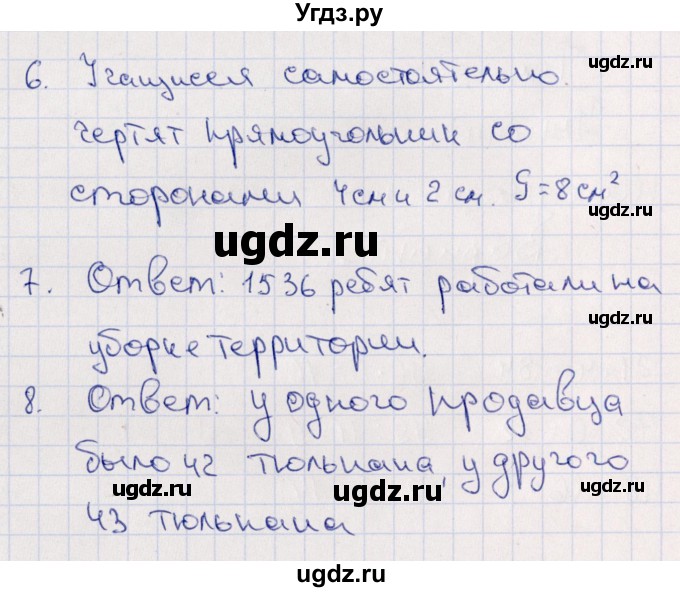 Угдз.ру
ugdz.ru
6. Учащиеся самостоятельно.
ugdz.ru
чертят прямоугольник со
сторонами 4см и 2 см. S=8см²
ugdz.ru
ugdz.ru
7. Ответ: 1536 ребят работали на
ugdz.ru
уборке территории.
8. Ответ: у одного продавца
было 42 тюльпана, у другого
ugdz.ru ugdz.ru ugdz.ru
43 тюльпана
ugdz.ru